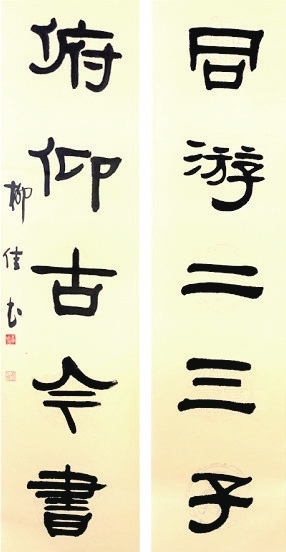 同游二三子
俯仰古今書
柳佳书